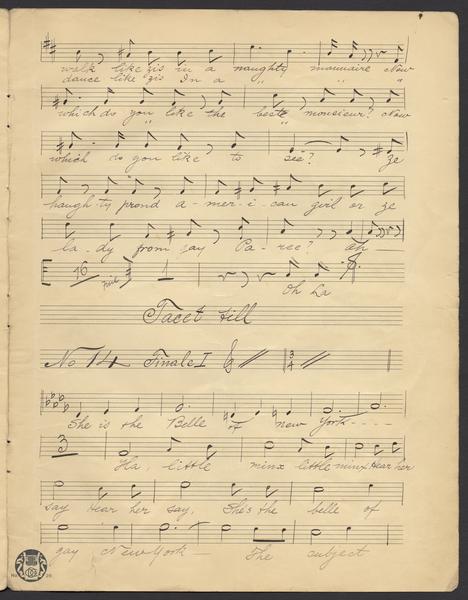 walk like zis in a naughty mannaire Now
dance like zis In a " " "
which do you like the beste monsieur? Now
which do you like to see? ze
haugh-ty proud a-mer-i-can girl or ze
la-dy from gay Pa-ree? Ah
16 1
Oh La
Tacet till
No 14 Finale I 3/4
She is the Belle of new York----
3 Ha, little minx little minx Hear her
say Hear her say, She's the belle of
gay New York — The subject